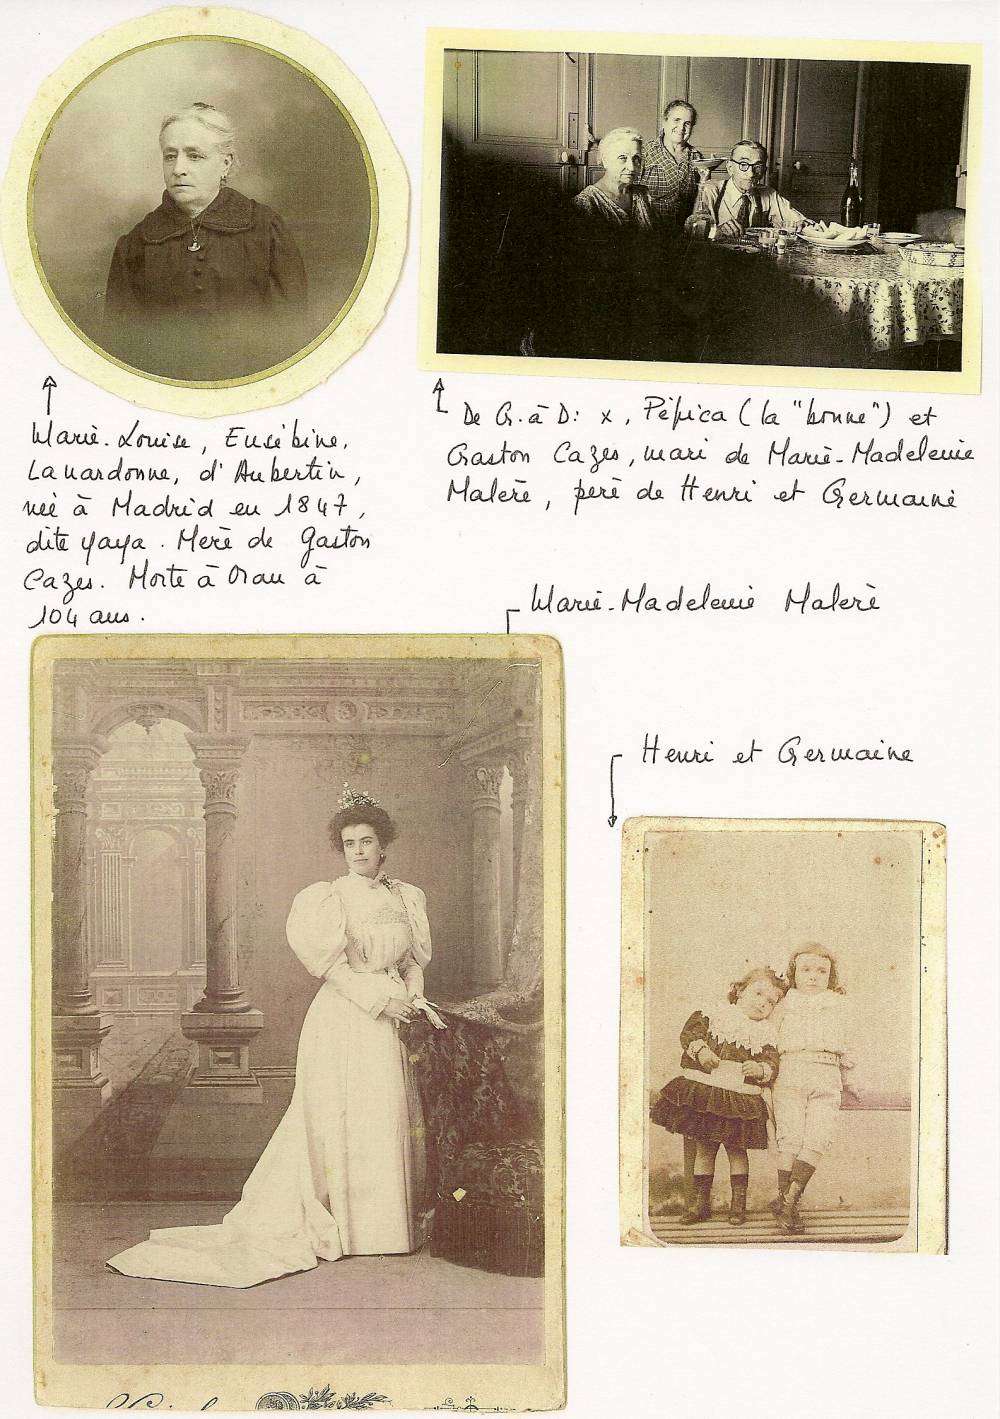 Marie-Louise, Eusébine,
Lanardonne, d'Aubertin,
née à Madrid en 1847,
dite yaya. Mère de Gaston
Cazes. Morte à Oran à
104 ans.
De G. à D: x, Pépica (la "bonne") et
Gaston Cazes, mari de Marie-Madeleine
Malère, père de Henri et Germaine
Marie-Madeleine Malère
Henri et Germaine